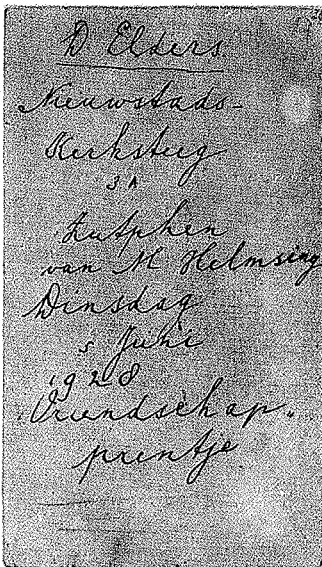 D Elders
Nieuwstads-
Kerksteeg
3A
Zutphen
van M Helmsing
Dinsdag
5 Juni
1928
Vriendschap„
prentje